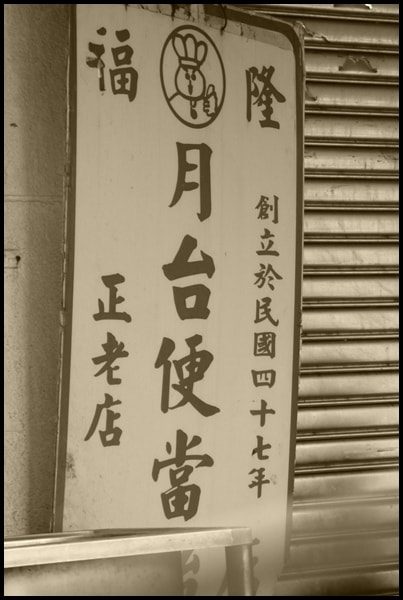 福隆
創立於民國四十七年
月台便當
正老店